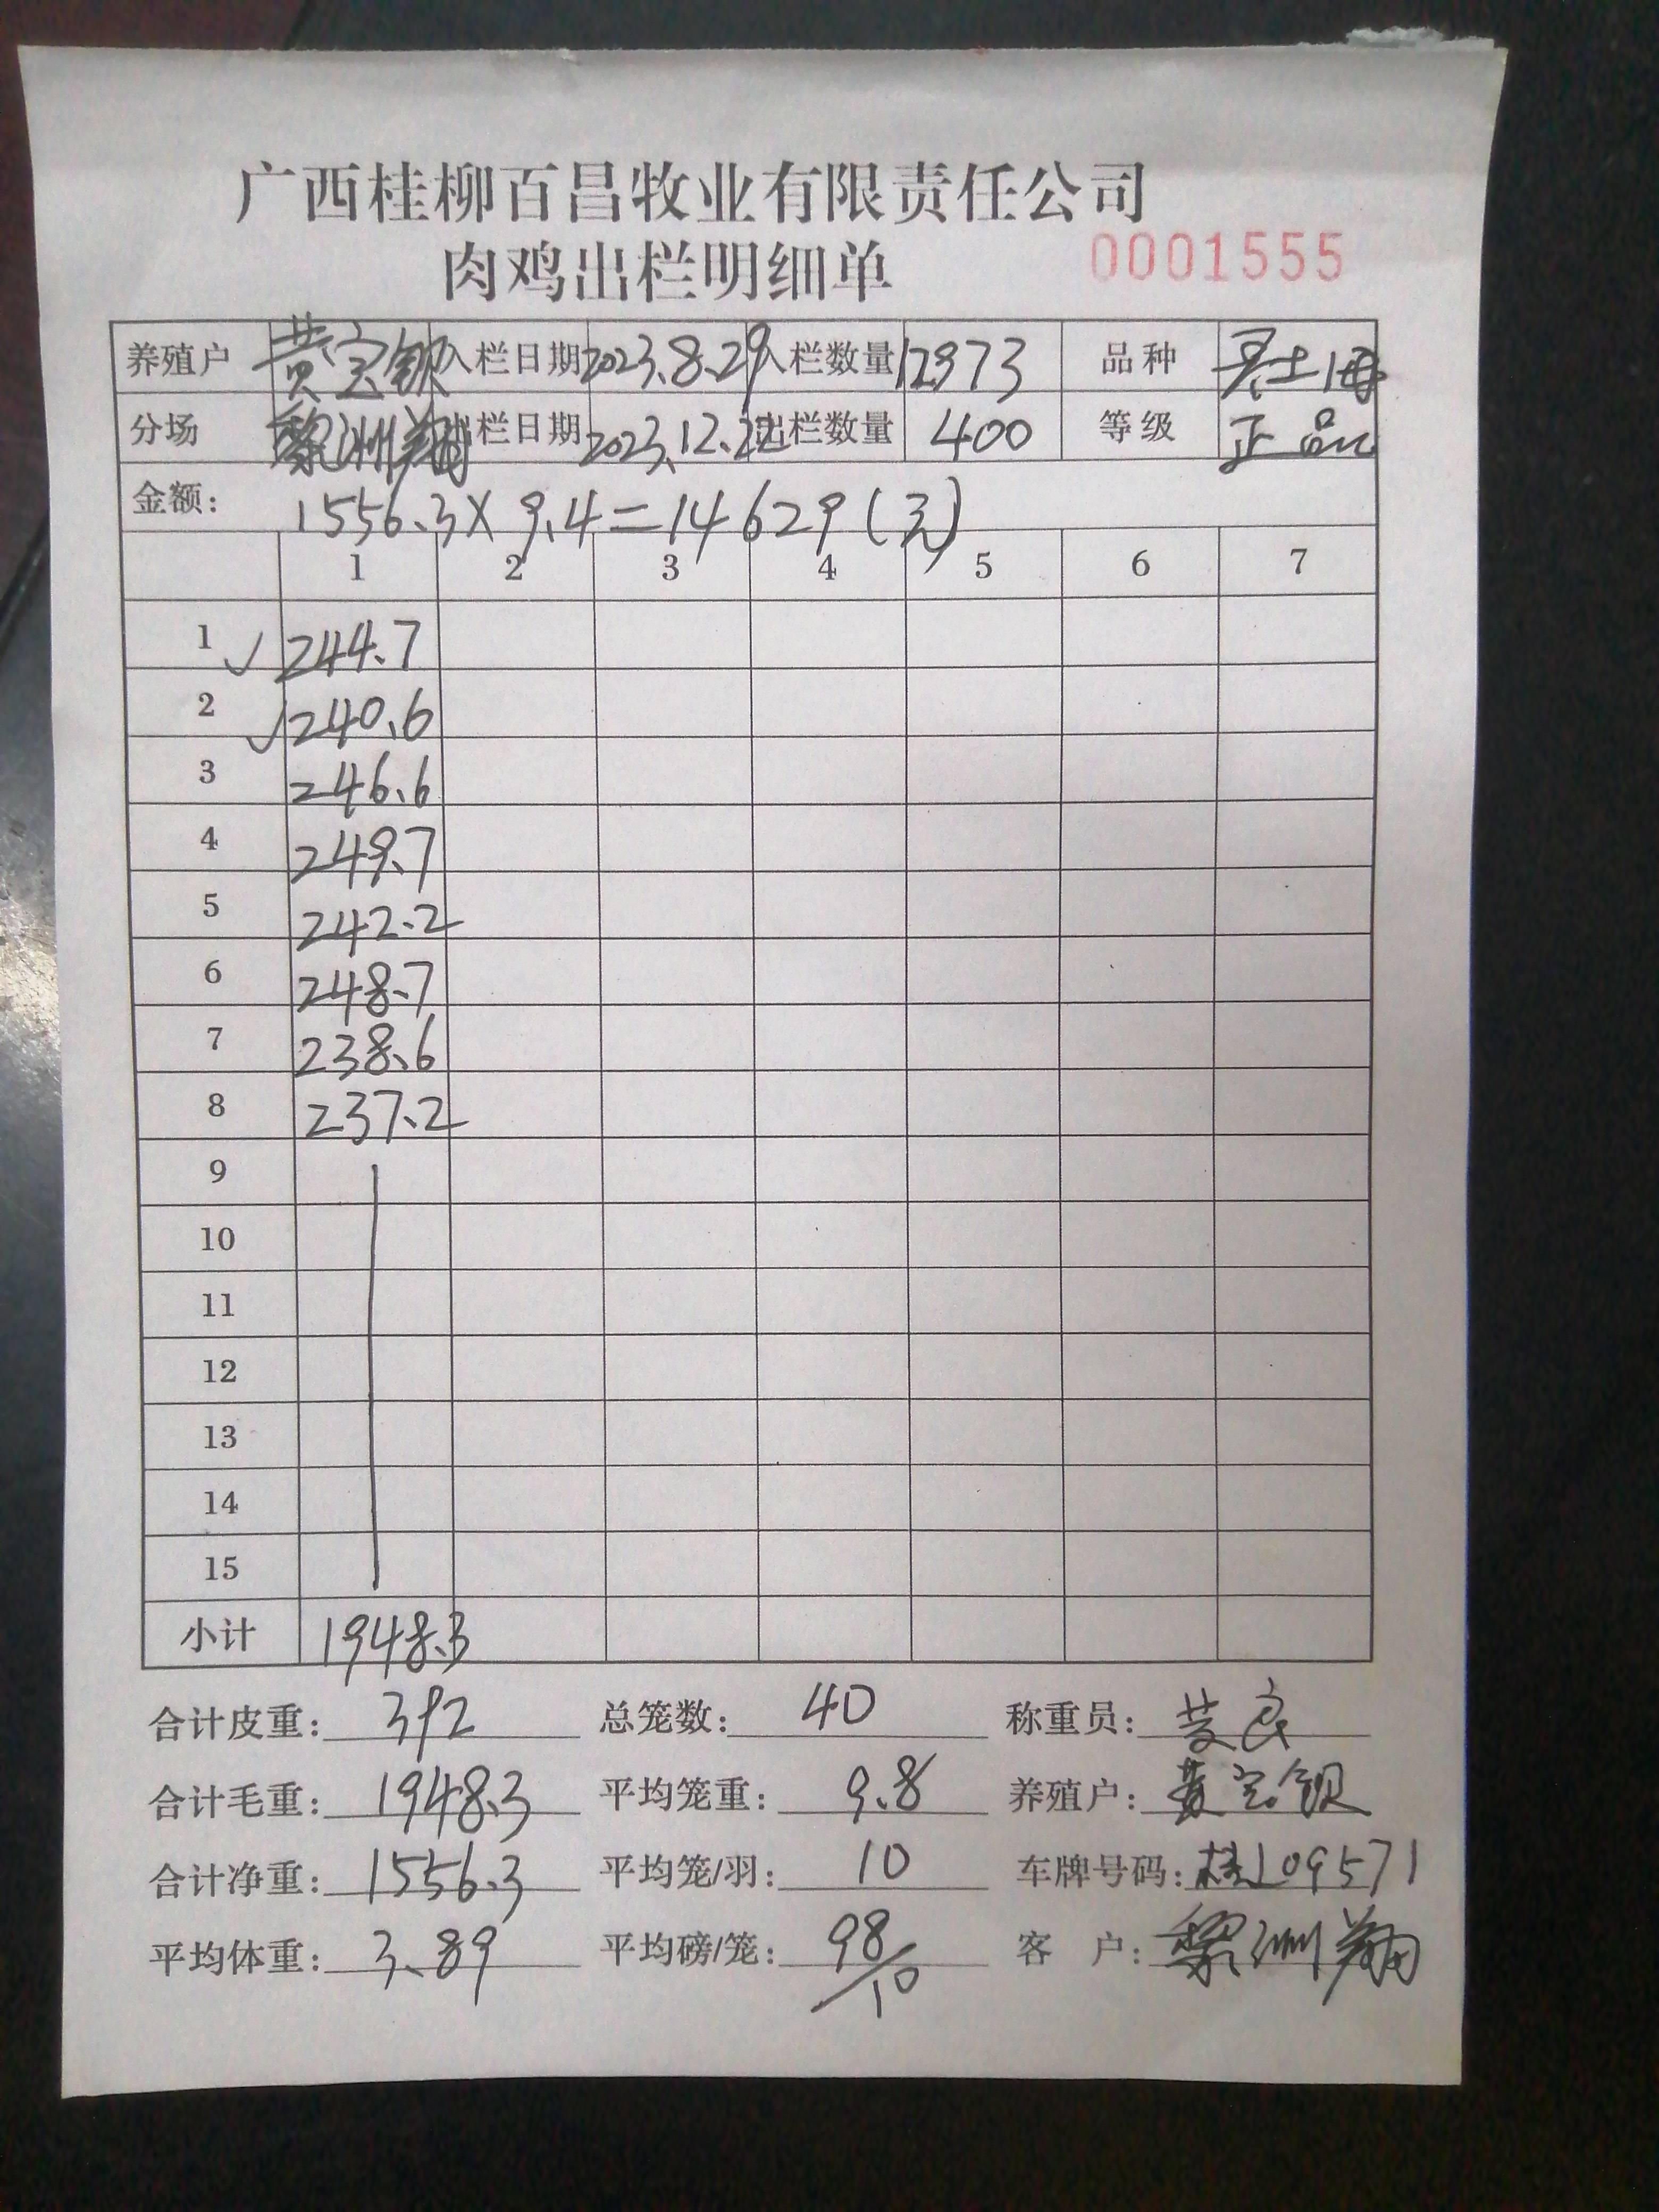 广西桂柳百昌牧业有限责任公司
肉鸡出栏明细单 0001555
养殖户 黄宝钦 入栏日期 2023.8.29 入栏数量 12973 品种
分场 黎洲翔 出栏日期 2023.12.22 出栏数量 400 等级 正品
金额: 1556.3×9.4=14629(元)
1 2 3 4 5 6 7
1 ✓ 244.7
2 ✓ 240.6
3 246.6
4 249.7
5 242.2
6 248.7
7 238.6
8 237.2
9
10
11
12
13
14
15
小计 1948.3
合计皮重: 392 总笼数: 40 称重员:
合计毛重: 1948.3 平均笼重: 9.8 养殖户: 黄宝钦
合计净重: 1556.3 平均笼/羽: 10 车牌号码: 桂L09571
平均体重: 3.89 平均磅/笼: 98/10 客 户: 黎洲翔